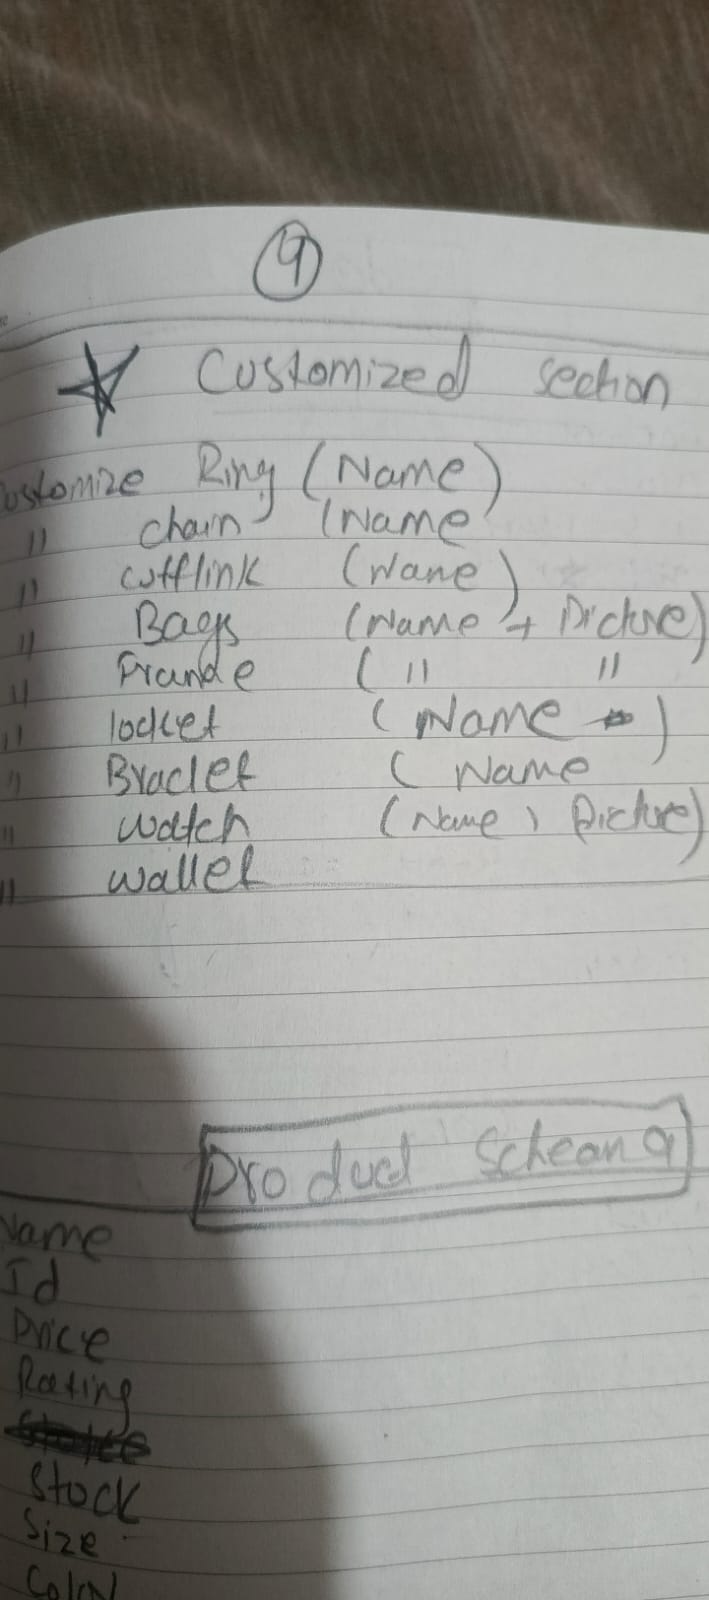 9
Customized section
Customize Ring (Name)
" chain (Name
" cufflink (Name)
" Bags (Name + Picture)
" (" "
" locket (Name)
" Braclet (Name
" watch (Name, Picture)
" wallet
Product Scheama
Name
Id
Price
Rating
Stock
Size
Color